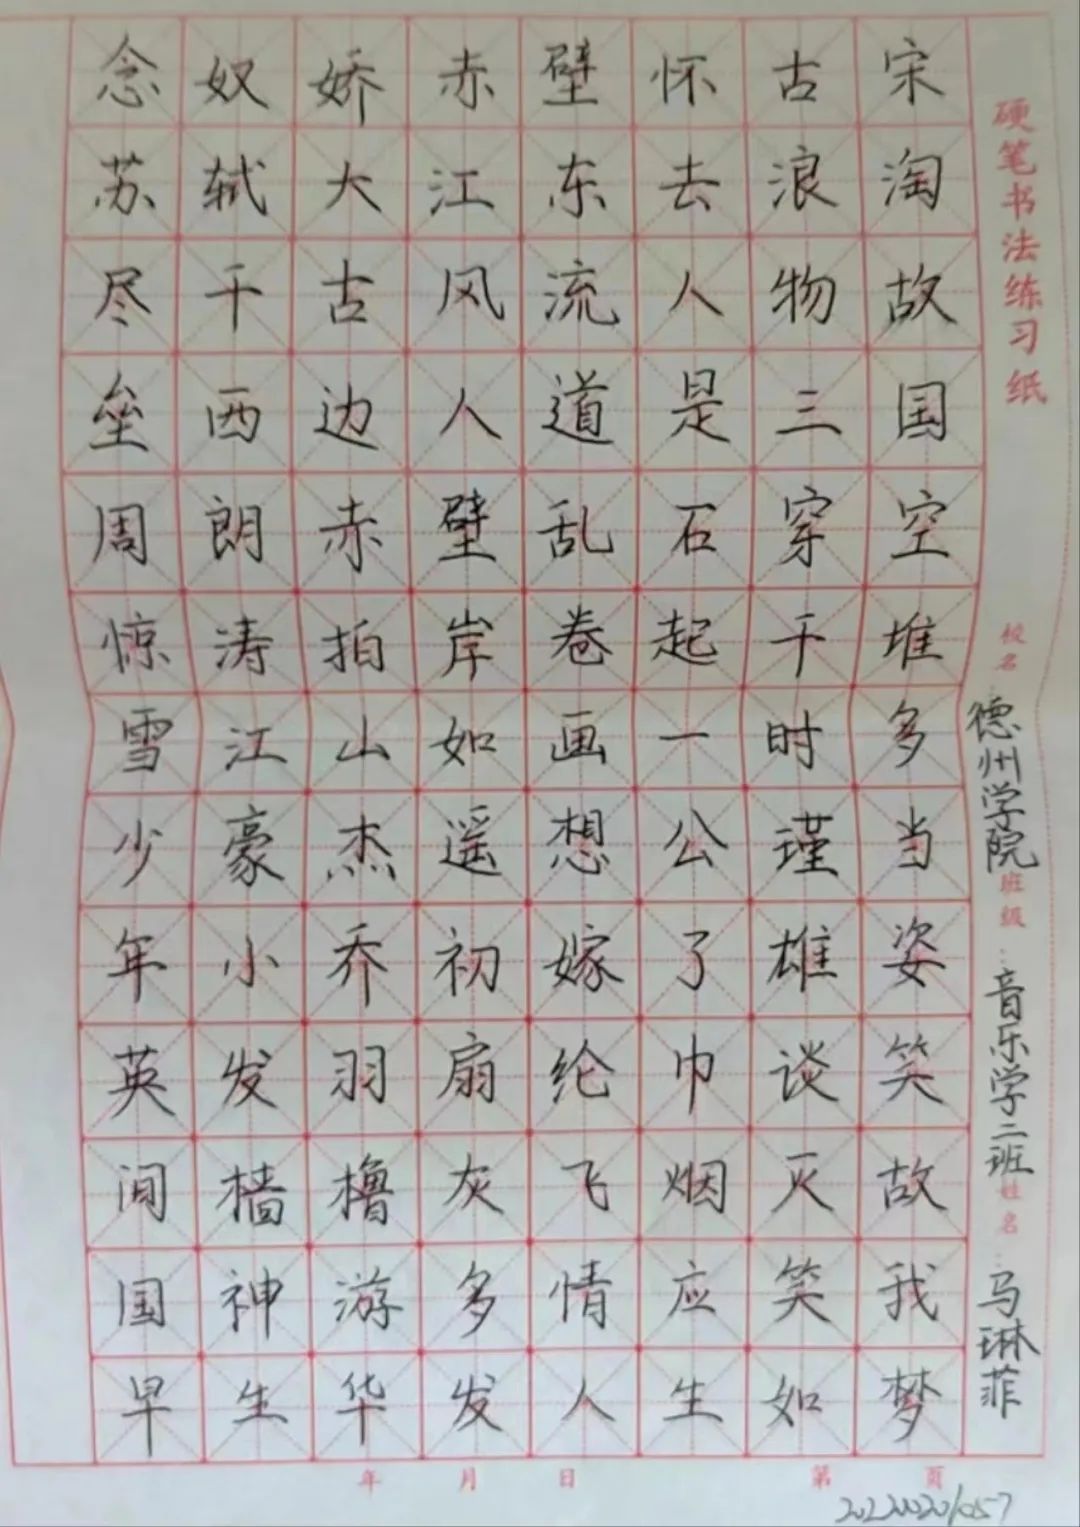 念奴娇赤壁怀古宋
苏轼大江东去浪淘
尽千古风流人物故
垒西边人道是三国
周朗赤壁乱石穿空
惊涛拍岸卷起千堆
雪江山如画一时多
少豪杰遥想公瑾当
年小乔初嫁了雄姿
英发羽扇纶巾谈笑
间樯橹灰飞烟灭故
国神游多情应笑我
早生华发人生如梦
硬笔书法练习纸
校名:德州学院
班级:音乐学二班
姓名:马琳菲
年 月 日 第 页